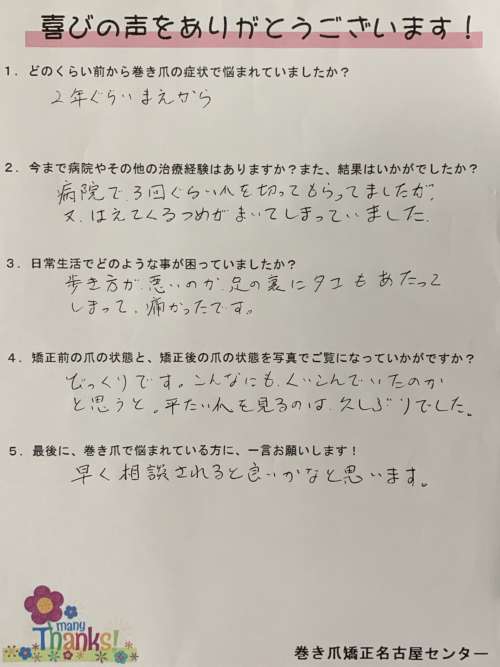 喜びの声をありがとうございます！
1．どのくらい前から巻き爪の症状で悩まれていましたか？
2年ぐらいまえから
2．今まで病院やその他の治療経験はありますか？また、結果はいかがでしたか？
病院で、3回ぐらい爪を切ってもらってましたが、
又、はえてくるつめがまいてしまっていました。
3．日常生活でどのような事が困っていましたか？
歩き方が、悪いのか、足の裏にタコもあたって
しまって、痛かったです。
4．矯正前の爪の状態と、矯正後の爪の状態を写真でご覧になっていかがですか？
びっくりです。こんなにも、くいこんでいたのか
と思うと。平たい爪を見るのは、久しぶりでした。
5．最後に、巻き爪で悩まれている方に、一言お願いします！
早く相談されると良いかなと思います。
many
Thanks!
巻き爪矯正名古屋センター